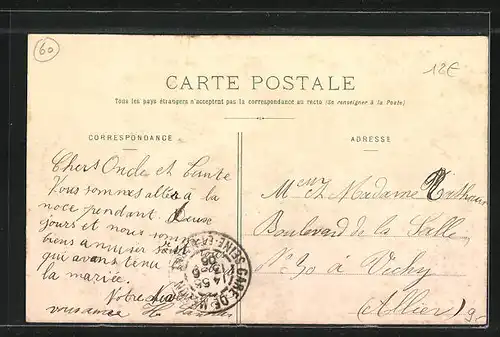 60
12€
CARTE POSTALE
Tous les pays étrangers n'acceptent pas la correspondance au recto (Se renseigner à la Poste)
CORRESPONDANCE
ADRESSE
Chers Oncle et Tante
Vous sommes allés à la
noce pendant deux
jours et nous som
biens amuser
qui avons tenu
la mariée.
Votre
vous aime
GARE DE
SEINE-ET-
Mr et Madame
Boulevard de la Salle
No 30 à Vichy
(Allier)